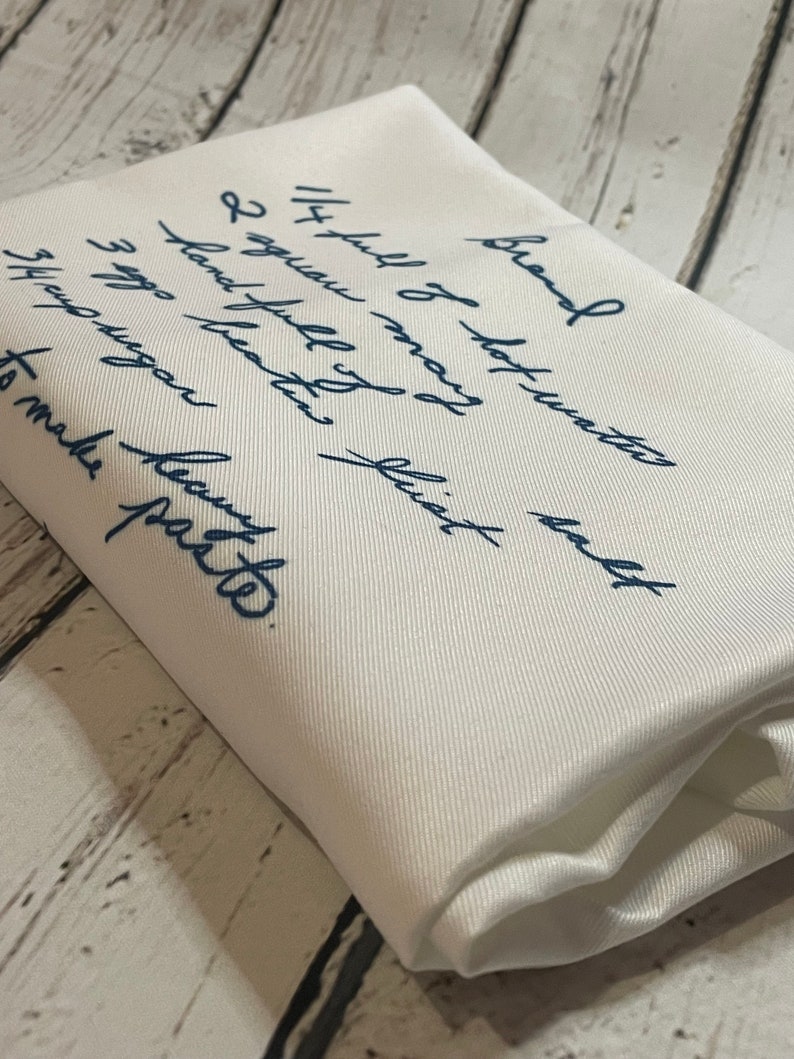 Bread
1/4 full of hot water
2 square may
hand full of salt
3 eggs beaten first
3/4 cup sugar
to make heavy
paste.